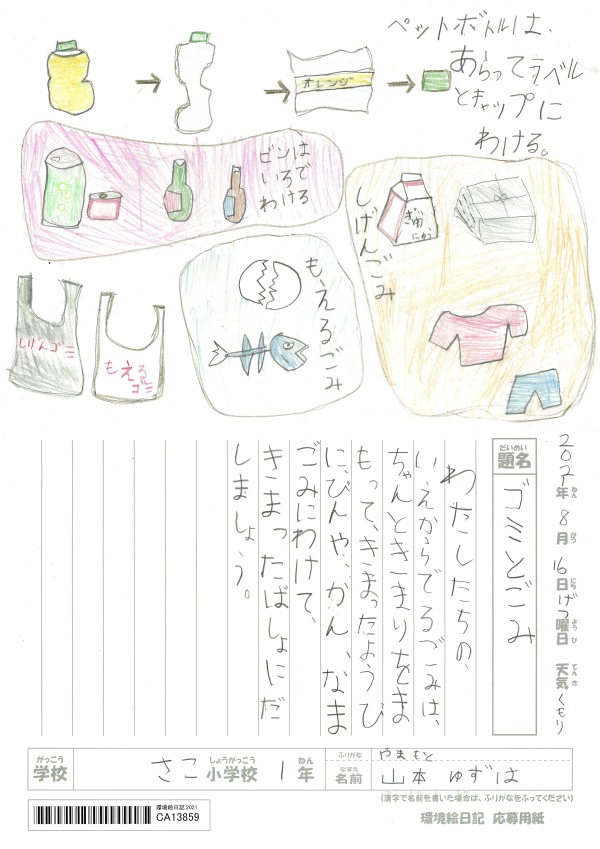 ペットボトルは、
あらってラベル
とキャップに
わける。
オレンジ
ビンは
いろで
わける
しげんごみ
ぎゅ
にゅう
もえるごみ
しげんゴミ
もえる
ゴミ
2021年 8月 16日 げつ曜日 天気 くもり
ねん がつ にち ようび てんき
だいめい
題名
ゴミとごみ
わたしたちの、
いえからでるごみは、
ちゃんときまりをま
もって、きまったようび
に、びんや、かん、なま
ごみにわけて、
きまったばしょにだ
しましょう。
がっこう しょうがっこう ねん
学校 さこ 小学校 1年
ふりがな やまもと
なまえ
名前 山本 ゆずは
(漢字で名前を書いた場合は、ふりがなをふってください)
環境絵日記 2021
CA13859
環境絵日記 応募用紙